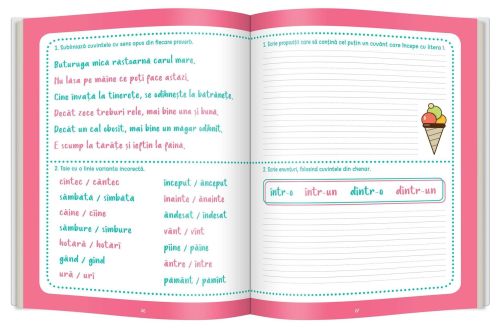 1. Subliniază cuvintele cu sens opus din fiecare proverb.
Buturuga mică răstoarnă carul mare.
Nu lăsa pe mâine ce poți face astăzi.
Cine învață la tinerețe, se odihnește la bătrânețe.
Decât zece treburi rele, mai bine una și bună.
Decât un cal obosit, mai bine un măgar odihnit.
E scump la tărâțe și ieftin la făină.
2. Taie cu o linie varianta incorectă.
cintec / cântec
sâmbăta / simbăta
câine / cîine
sâmbure / simbure
hotără / hotărî
gând / gînd
ură / urî
început / ânceput
inainte / ânainte
ândesat / îndesat
vânt / vînt
pîine / pâine
ântre / între
pământ / pămînt
1. Scrie propoziții care să conțină cel puțin un cuvânt care începe cu litera î.
2. Scrie enunțuri, folosind cuvintele din chenar.
într-o într-un dintr-o dintr-un